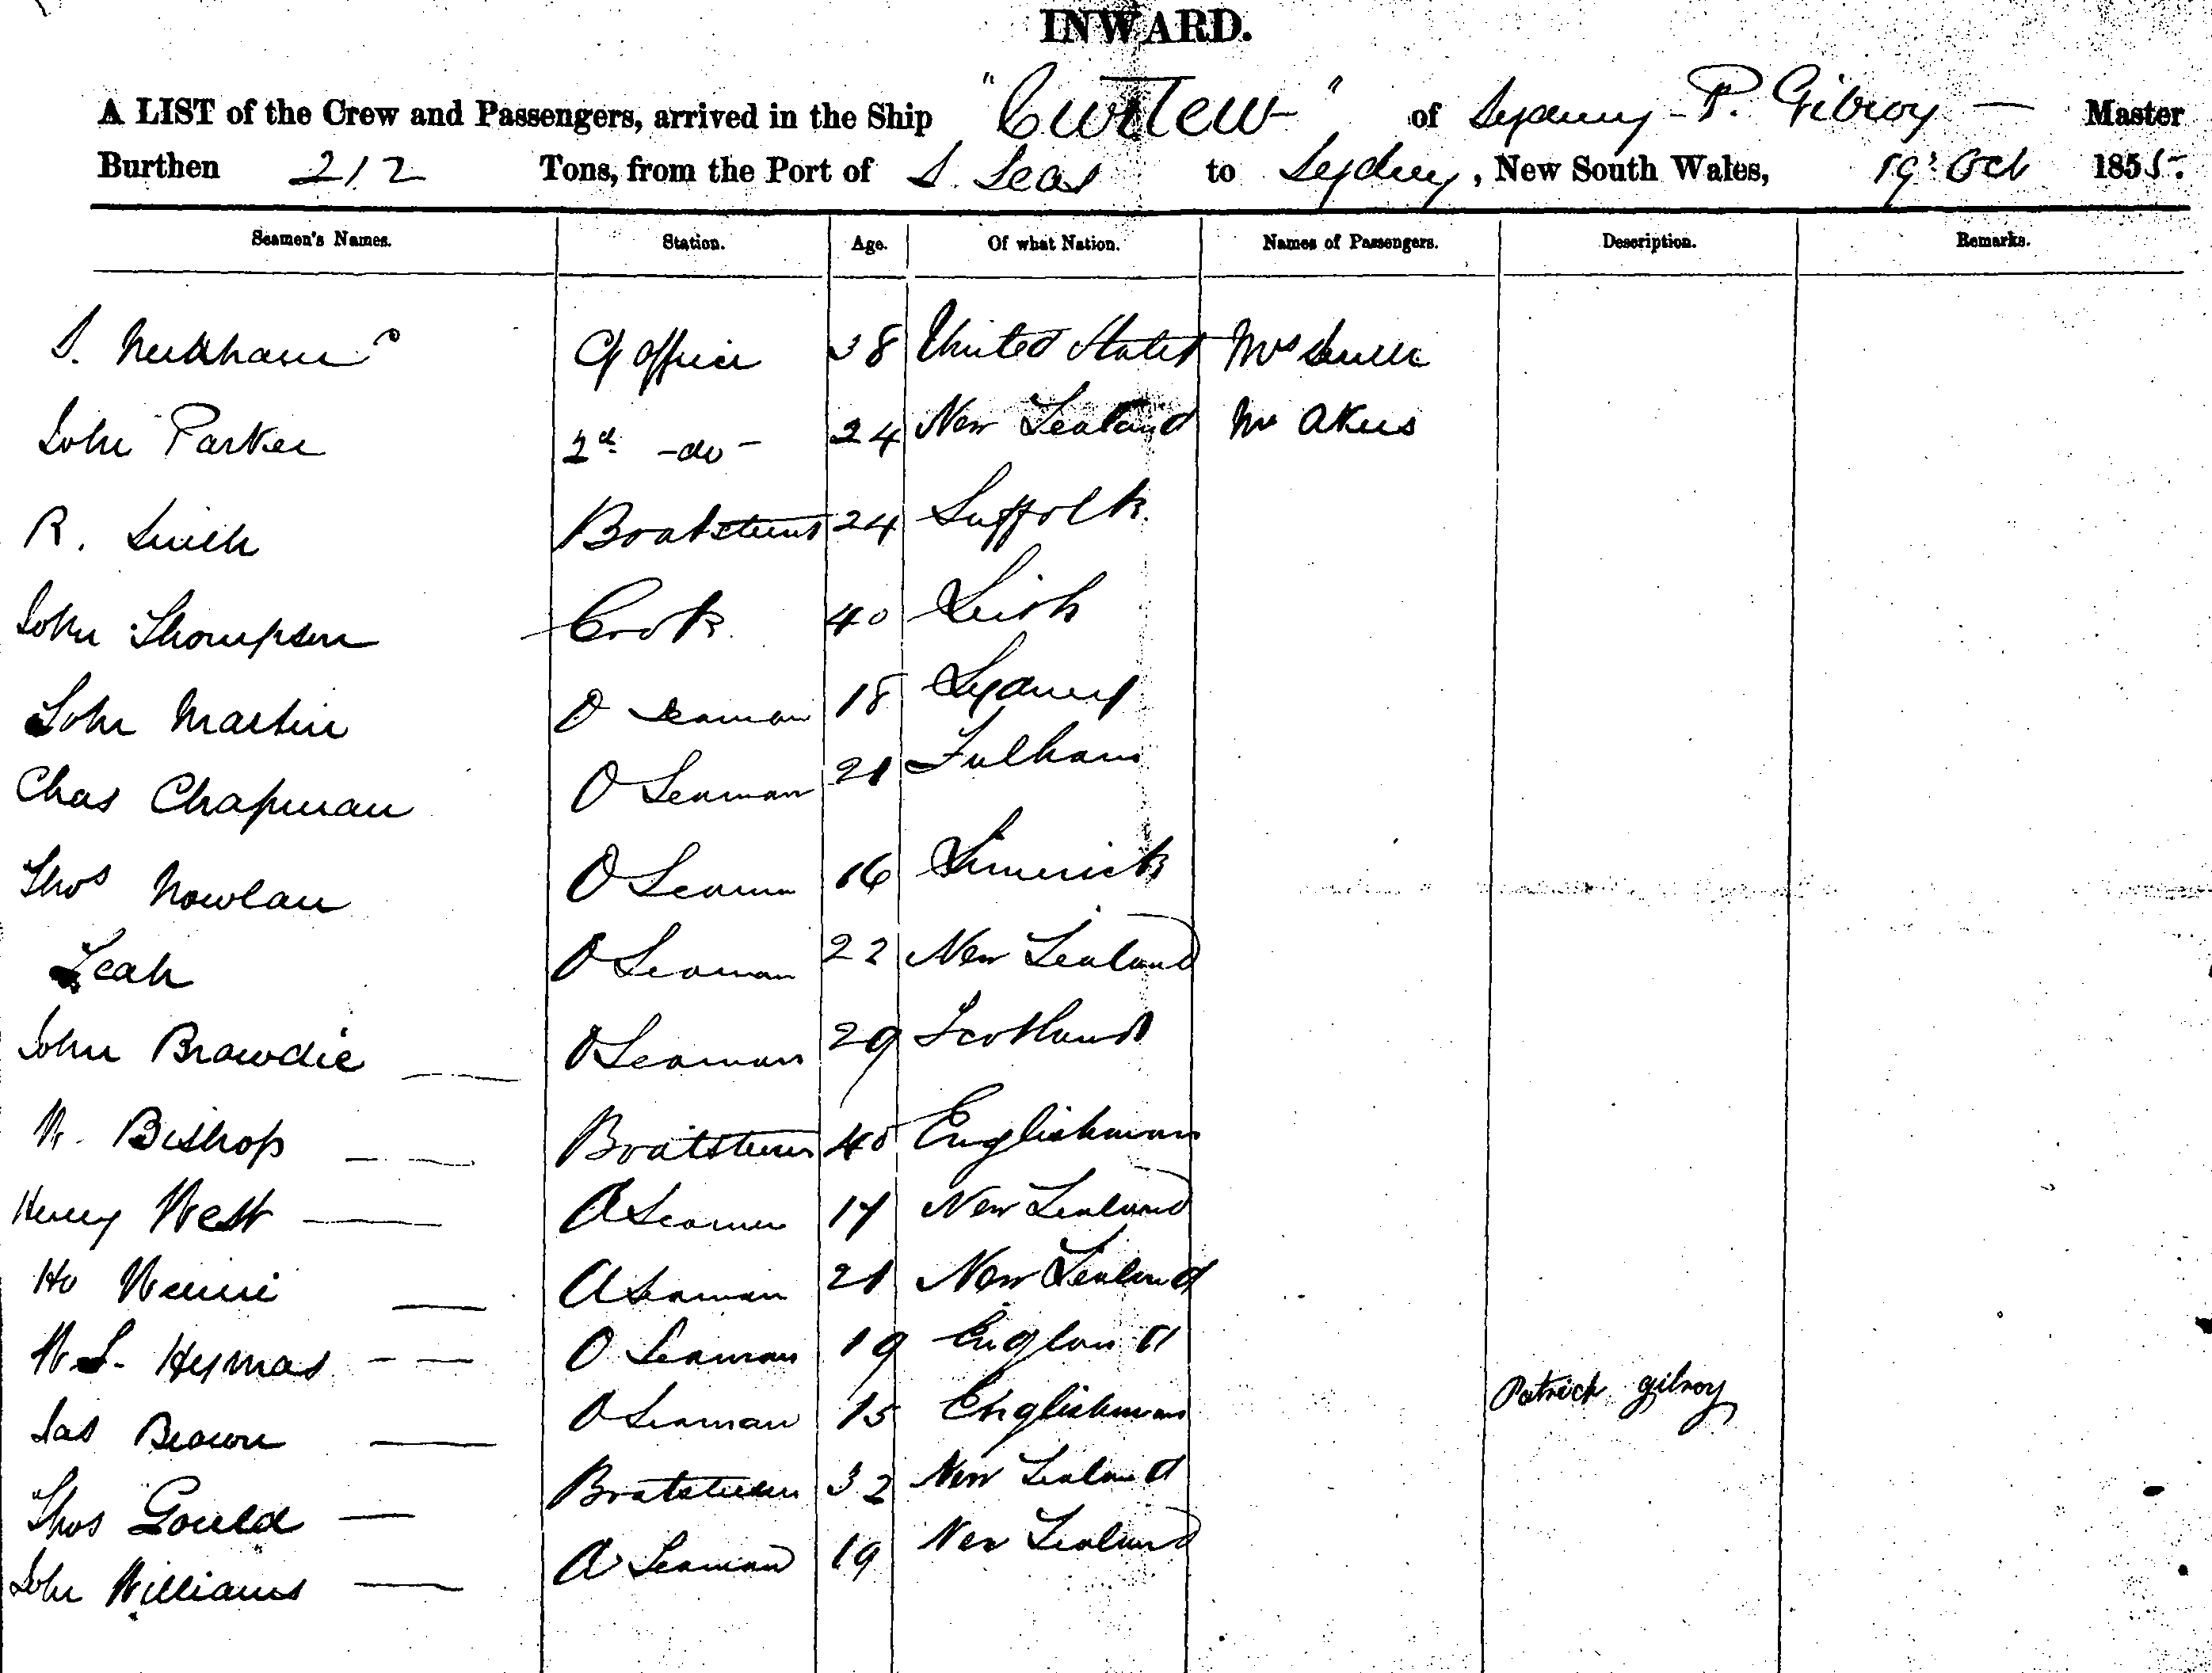 INWARD.
A LIST of the Crew and Passengers, arrived in the Ship "Curlew" of Sydney P. Gilroy — Master
Burthen 212 Tons, from the Port of S. Seas to Sydney, New South Wales, 19 Oct 1855.
Seamen's Names. Station. Age. Of what Nation. Names of Passengers. Description. Remarks.
S. Cf Officer 38 United States Mrs Smith
John Parker 2d -do- 24 New Zealand Mr Akers
R. Smith Boatsteerer 24 Suffolk
John Thompson Cook 40 Leith
John Martin O Seaman 18 Sydney
Chas Chapman O Seaman 21 Fulham
Thos Nowlan O Seaman 16 Limerick
Leah O Seaman 22 New Zealand
John Browdie O Seaman 29 Scotland
W. Bishop Boatsteerer 40 Englishman
Henry West A Seaman 17 New Zealand
A Seaman 21 New Zealand
W. S. Hymas O Seaman 19 England
Jas Brown O Seaman 15 Englishman
Patrick Gilroy
Thos Gould Boatsteerer 32 New Zealand
John Williams A Seaman 19 New Zealand